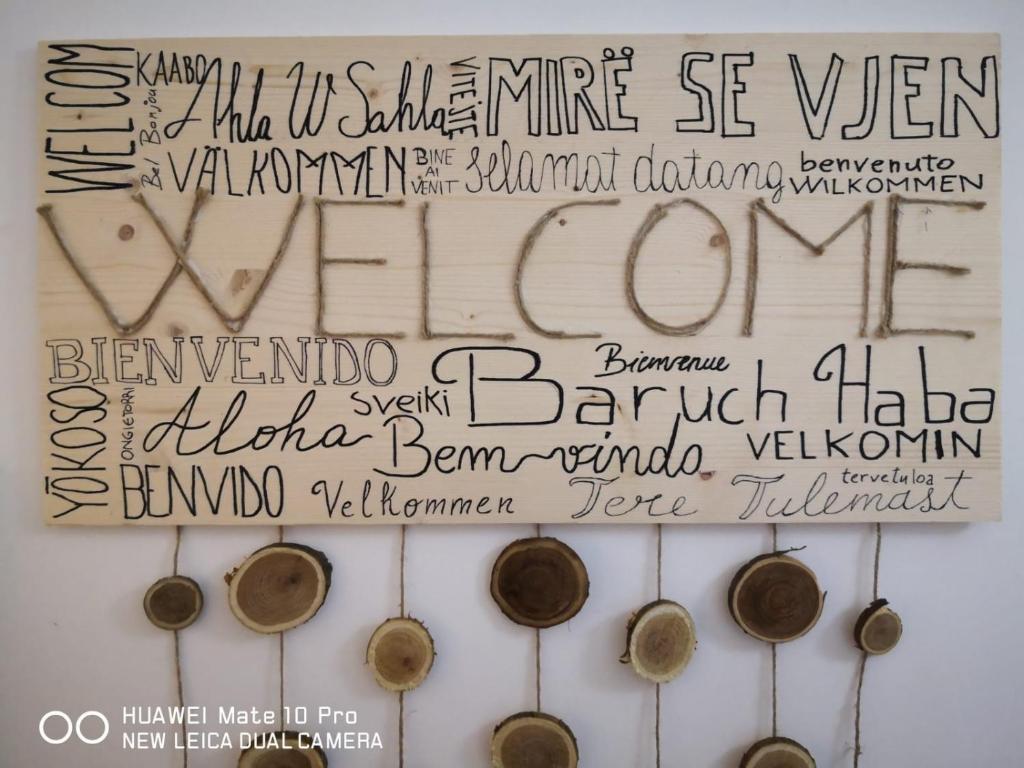 WELCOM
KAABO
Bel Bonjou
Ahla W Sahla
VITEJTE
MIRË SE VJEN
VÄLKOMMEN
BINE
AI
VENIT
selamat datang
benvenuto
WILKOMMEN
WELCOME
BIENVENIDO
Bienvenue
YŌKOSO
ONGIETORRI
Aloha
sveiki
Baruch Haba
Bem-vindo
VELKOMIN
BENVIDO
Velkommen
Tere Tulemast
tervetuloa
HUAWEI Mate 10 Pro
NEW LEICA DUAL CAMERA